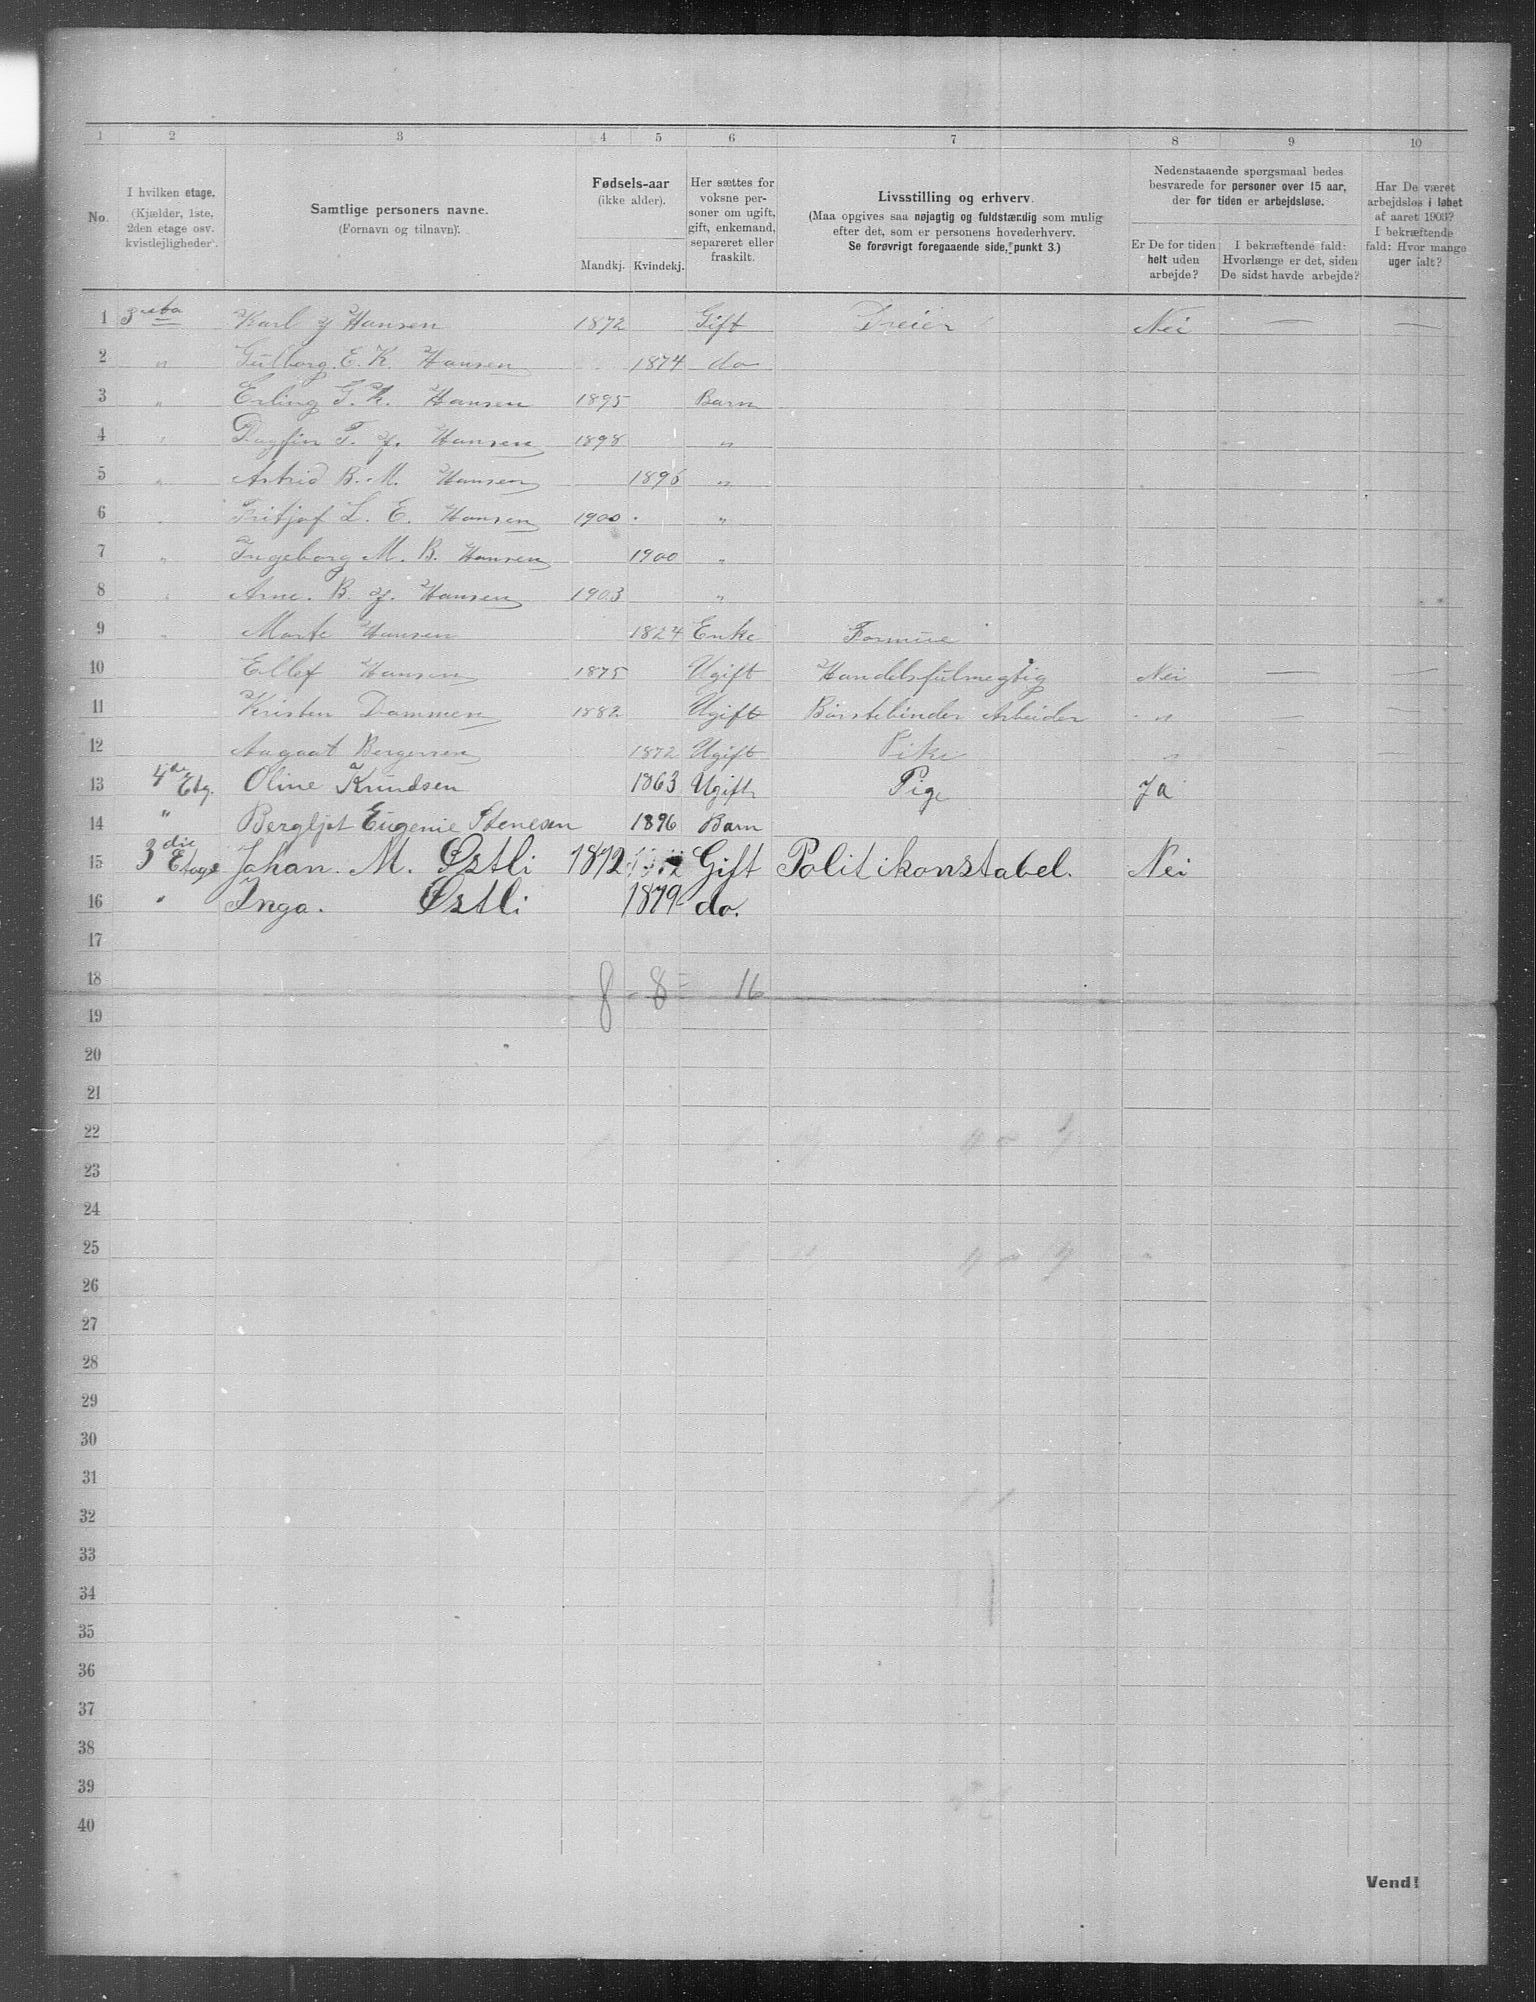 1 2 3 4 5 6 7 8 9 10
No.
I hvilken etage.
(Kjælder, 1ste, 2den etage osv. kvistlejligheder).
Samtlige personers navne.
(Fornavn og tilnavn).
Fødsels-aar
(ikke alder).
Mandkj. Kvindekj.
Her sættes for voksne personer om ugift, gift, enkemand, separeret eller fraskilt.
Livsstilling og erhverv.
(Maa opgives saa nøjagtig og fuldstærdig som mulig efter det, som er personens hovederhverv.
Se forøvrigt foregaaende side, punkt 3.)
Nedenstaaende spørgsmaal bedes besvarede for personer over 15 aar, der for tiden er arbejdsløse.
Er De for tiden helt uden arbejde?
I bekræftende fald: Hvorlænge er det, siden De sidst havde arbejde?
Har De været arbejdsløs i løbet af aaret 1903? I bekræftende fald: Hvor mange uger ialt?
1 Karl J Hansen 1872 Gift Dreier Nei — —
2 " Gulborg E. K. Hansen 1874 do
3 " Erling G. K. Hansen 1895 Barn
4 " Dagfin T. J. Hansen 1898 "
5 " Astrid B. M. Hansen 1896 "
6 " Fritjof L. E. Hansen 1900 "
7 " Ingeborg M. B. Hansen 1900 "
8 " Arne. B. J. Hansen 1903 "
9 " Marte Hansen 1824 Enke Formue
10 Ellef Hansen 1875 Ugift Handelsfulmegtig Nei — —
11 Kristen Dammen 1882 Ugift Børstebinder Arbeider " — —
12 Bergersen 1872 Ugift Pike "
13 4de Etg. Oline Knudsen 1863 Ugift Pige Ja
14 " Bergljot Eugenie Stenesen 1896 Barn
15 3die Etage Johan. M. Østli 1872 Gift Politikonstabel. Nei
16 " Inga. Østli 1879 do.
17
18 8 - 8 = 16
19
20
21
22
23
24
25
26
27
28
29
30
31
32
33
34
35
36
37
38
39
40
Vend!